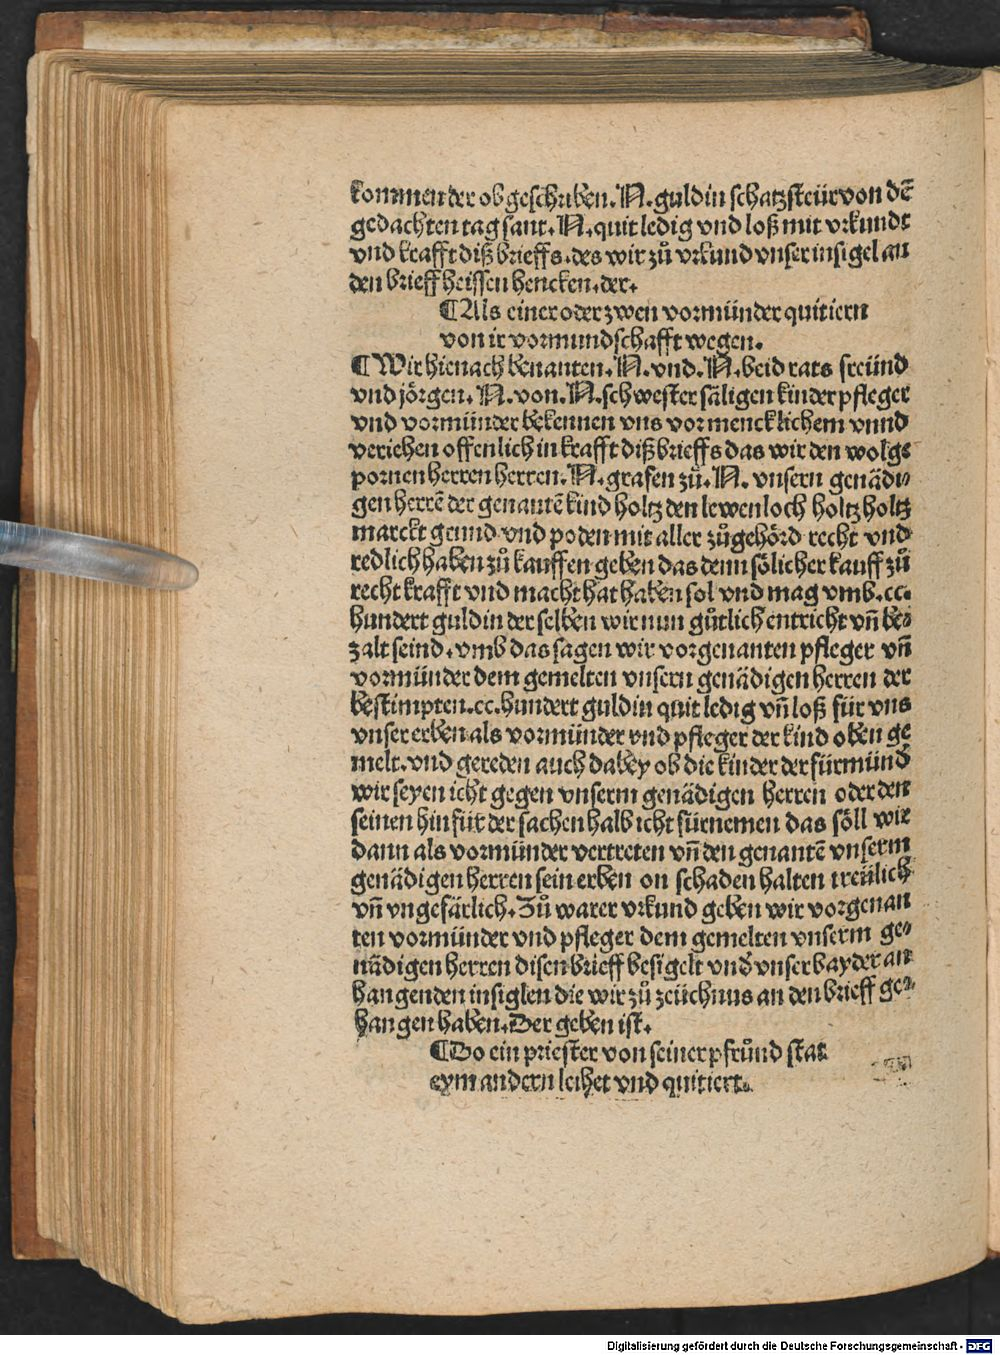 kommen der obgeschriben. N. guldin schatzsteür von dē
gedachten tag sant. N. quit ledig vnd loß mit vrkundt
vnd krafft diß brieffs. des wir zů vrkund vnser insigel an
den brieff heissen hencken. der.
¶ Als einer oder zwen vormünder quitiern
von ir vormundschafft wegen.
¶ Wir hienach benanten. N. vnd. N. beid rats freünd
vnd jörgen. N. von. N. schwester säligen kinder pfleger
vnd vormünder bekennen vns vor mencklichem vnnd
veriehen offenlich in krafft diß brieffs das wir den wolge
pornen herren herren. N. grafen zů. N. vnsern genädi⸗
gen herrē der genantē kind holtz den lewenloch holtz holtz
marckt grund vnd poden mit aller zůgehörd recht vnd
redlich haben zů kauffen geben das denn sölicher kauff zů
recht krafft vnd macht hat haben sol vnd mag vmb. cc.
hundert guldin der selben wir nun gůtlich entricht vn̄ be⸗
zalt seind. vmb das sagen wir vorgenanten pfleger vn̄
vormünder dem gemelten vnsern genädigen herren der
bestimpten. cc. hundert guldin quit ledig vn̄ loß für vns
vnser erben als vormünder vnd pfleger der kind oben ge
melt. vnd gereden auch dabey ob die kinder der fürmünd
wir seyen icht gegen vnserm genädigen herren oder den
seinen hin für der sachen halb icht fürnemen das söll wir
dann als vormünder vertreten vn̄ den genantē vnserm
genädigen herren sein erben on schaden halten treülich
vn̄ vngefärlich. Zů warer vrkund geben wir vorgenan
ten vormünder vnd pfleger dem gemelten vnserm ge⸗
nädigen herren disen brieff besigelt vnd' vnser bayder an
hangenden insiglen die wir zů zeüchnus an den brieff ge⸗
hangen haben. Der geben ist.
¶ Do ein priester von seiner pfrůnd stat
eym andern leihet vnd quitiert.
Digitalisierung gefördert durch die Deutsche Forschungsgemeinschaft - DFG